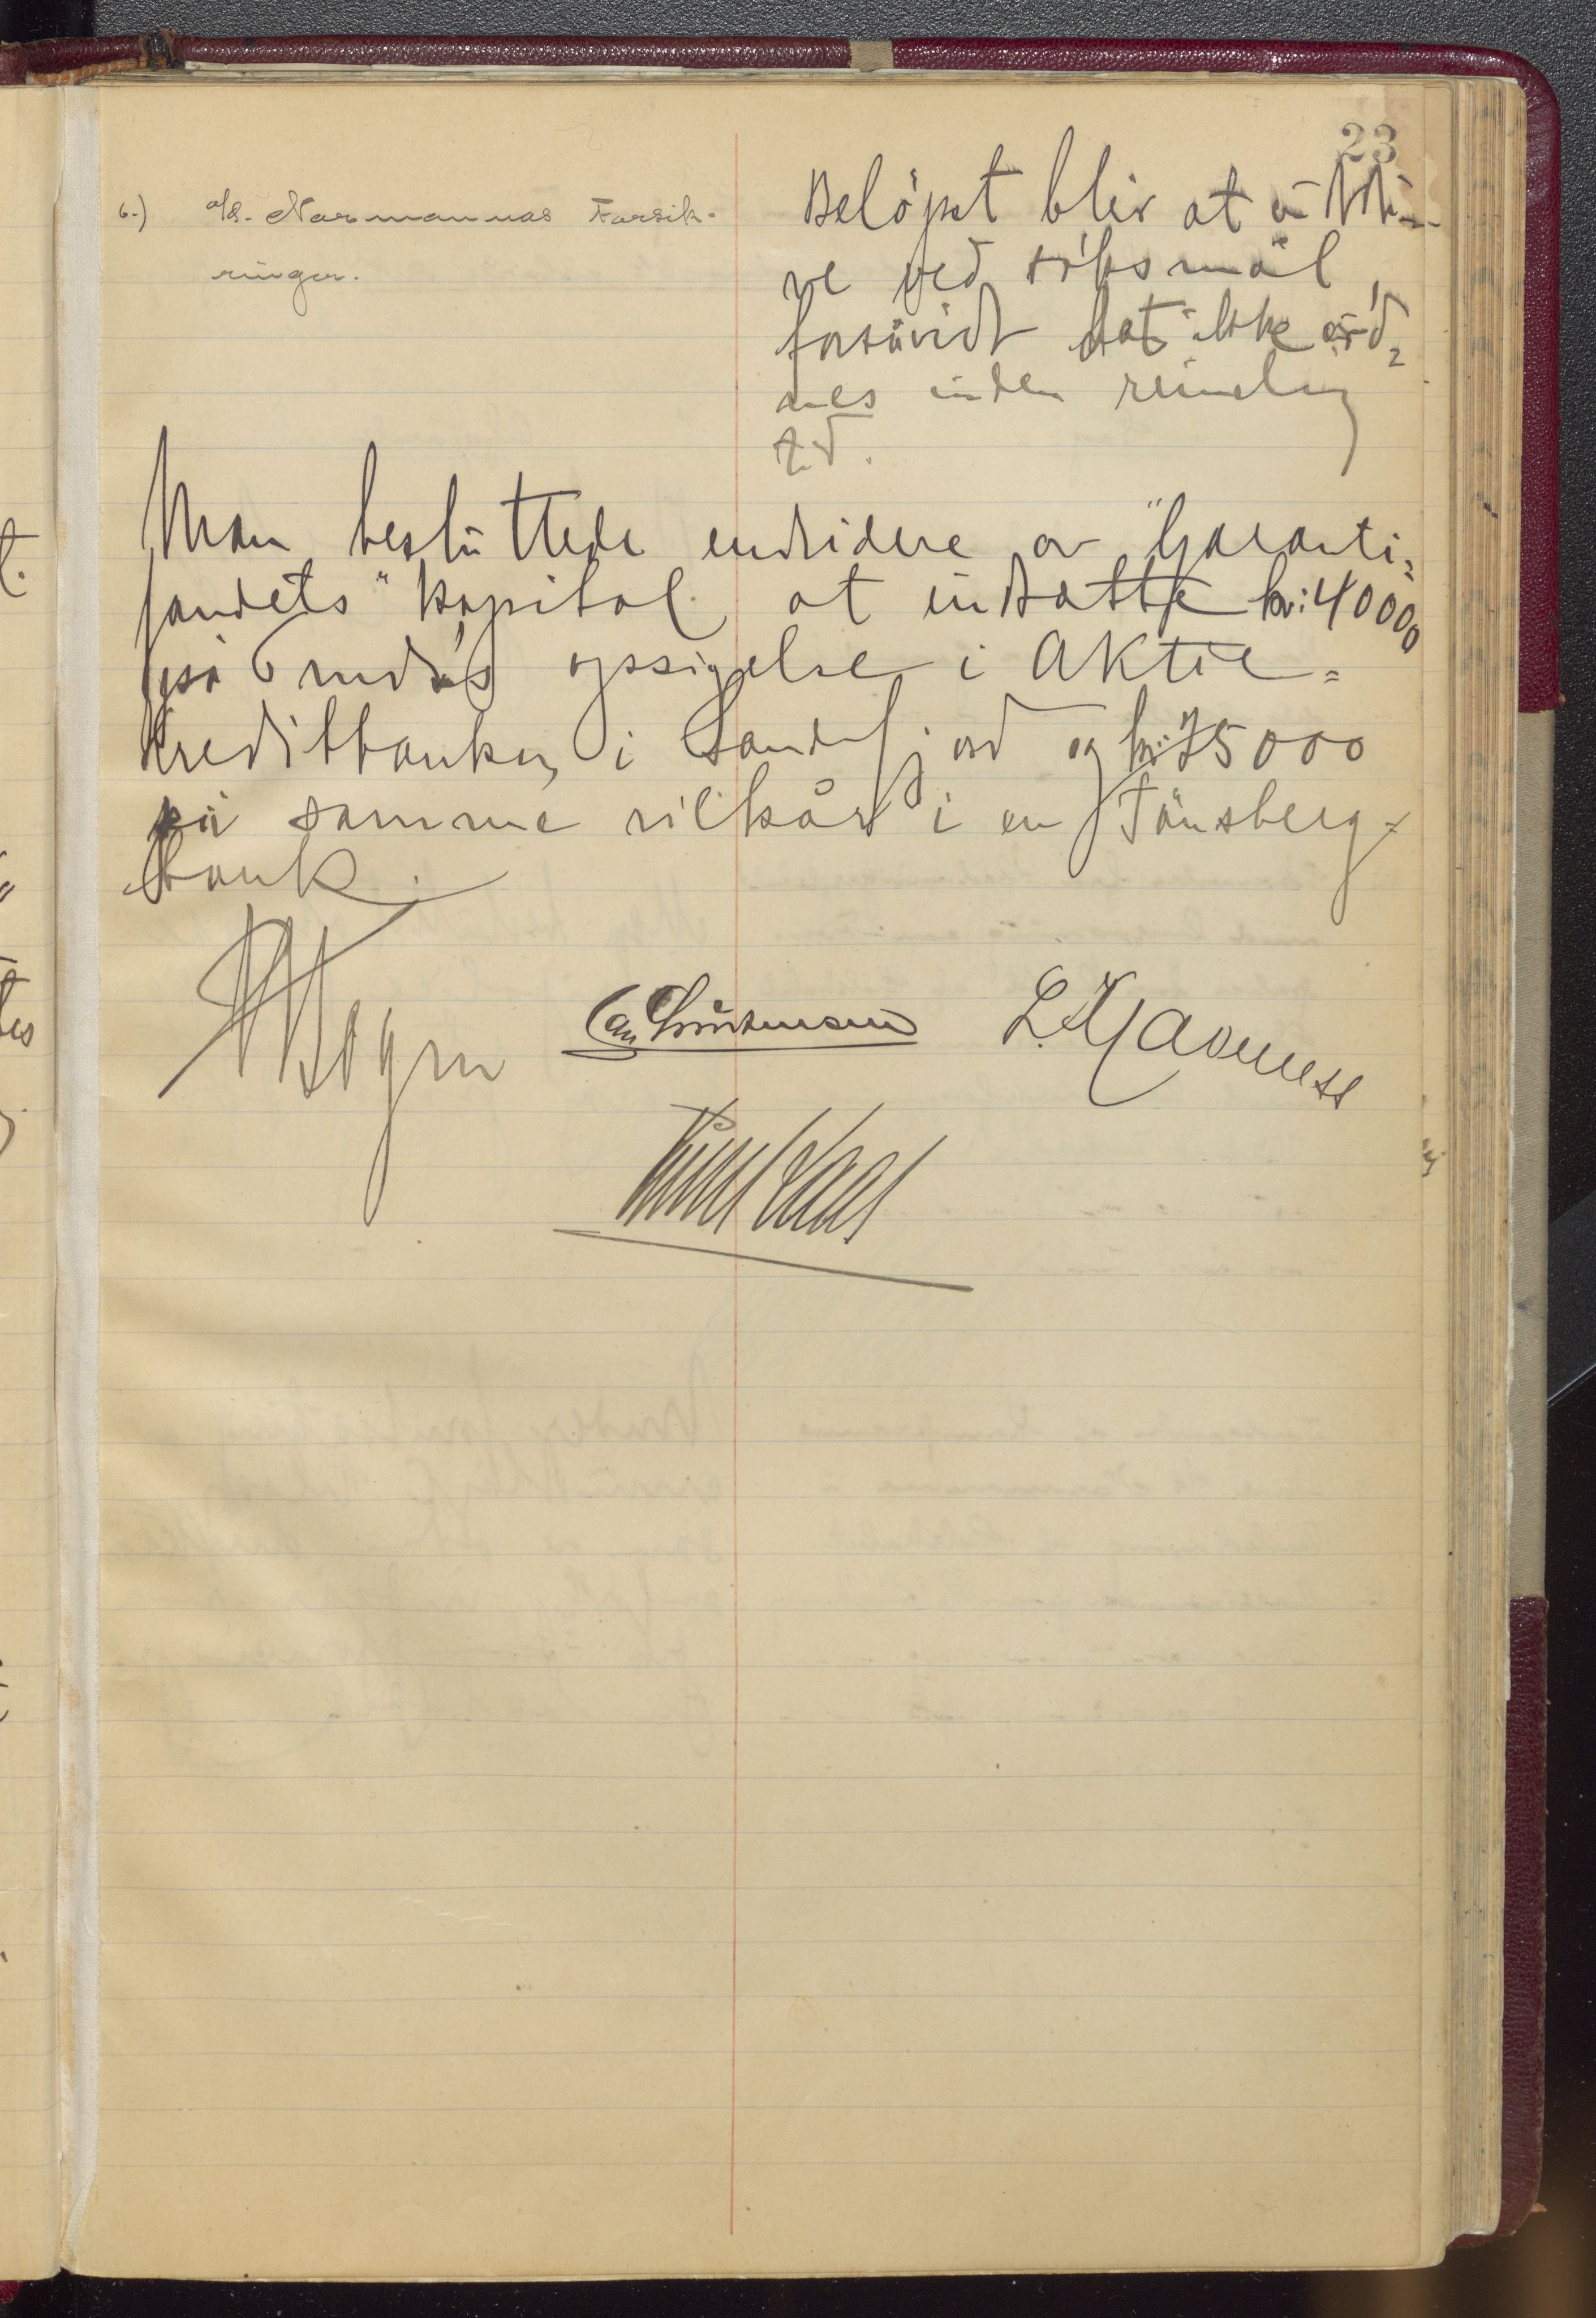 23
6.) A/S. Normannas Forsik-
ringer.
Beløpet blir at indkræ-
ve ved søksmål,
forsåvidt det ikke ord=
nes inden rimelig
tid.
Man besluttede endvidere av "Garanti=
fondets" kapital at indsætte kr: 40000
på 6 mdrs opsigelse i Aktie=
Kreditbanken i Sandefjord og kr: 75000
på samme vilkår i en Tønsberg=
bank.
Chr Christensen